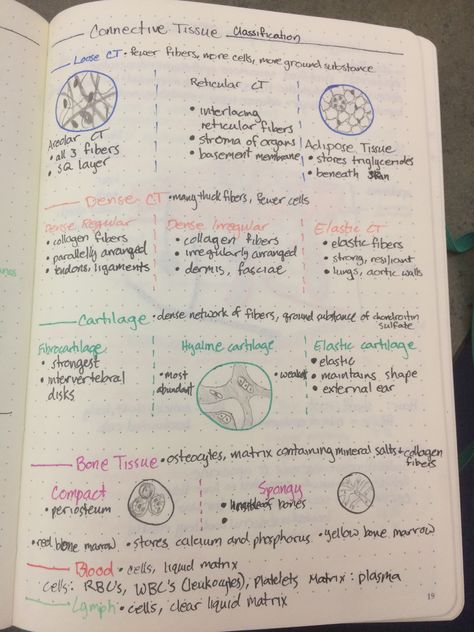 Connective Tissue Classification
Loose CT • fewer fibers, more cells, more ground substance
Areolar CT
• all 3 fibers
• SQ layer
Reticular CT
• interlacing
reticular fibers
• stroma of organs
• basement membrane
Adipose Tissue
• stores triglycerides
• beneath skin
Dense CT • many thick fibers, fewer cells
Dense Regular
• collagen fibers
• parallelly arranged
• tendons, ligaments
Dense Irregular
• collagen fibers
• irregularly arranged
• dermis, fasciae
Elastic CT
• elastic fibers
• strong, resiliant
• lungs, aortic walls
Cartilage • dense network of fibers, ground substance of chondroitin
sulfate
Fibrocartilage
• strongest
• intervertebral
disks
Hyaline cartilage
• most
abundant
• weakest
Elastic cartilage
• elastic
• maintains shape
• external ear
Bone Tissue • osteocytes, matrix containing mineral salts + collagen
fibers
Compact
• periosteum
Spongy
• inside of bones
•
• red bone marrow • stores calcium and phosphorus • yellow bone marrow
Blood • cells, liquid matrix
cells: RBC's, WBC's (leukocytes), platelets matrix: plasma
Lymph • cells, clear liquid matrix
19